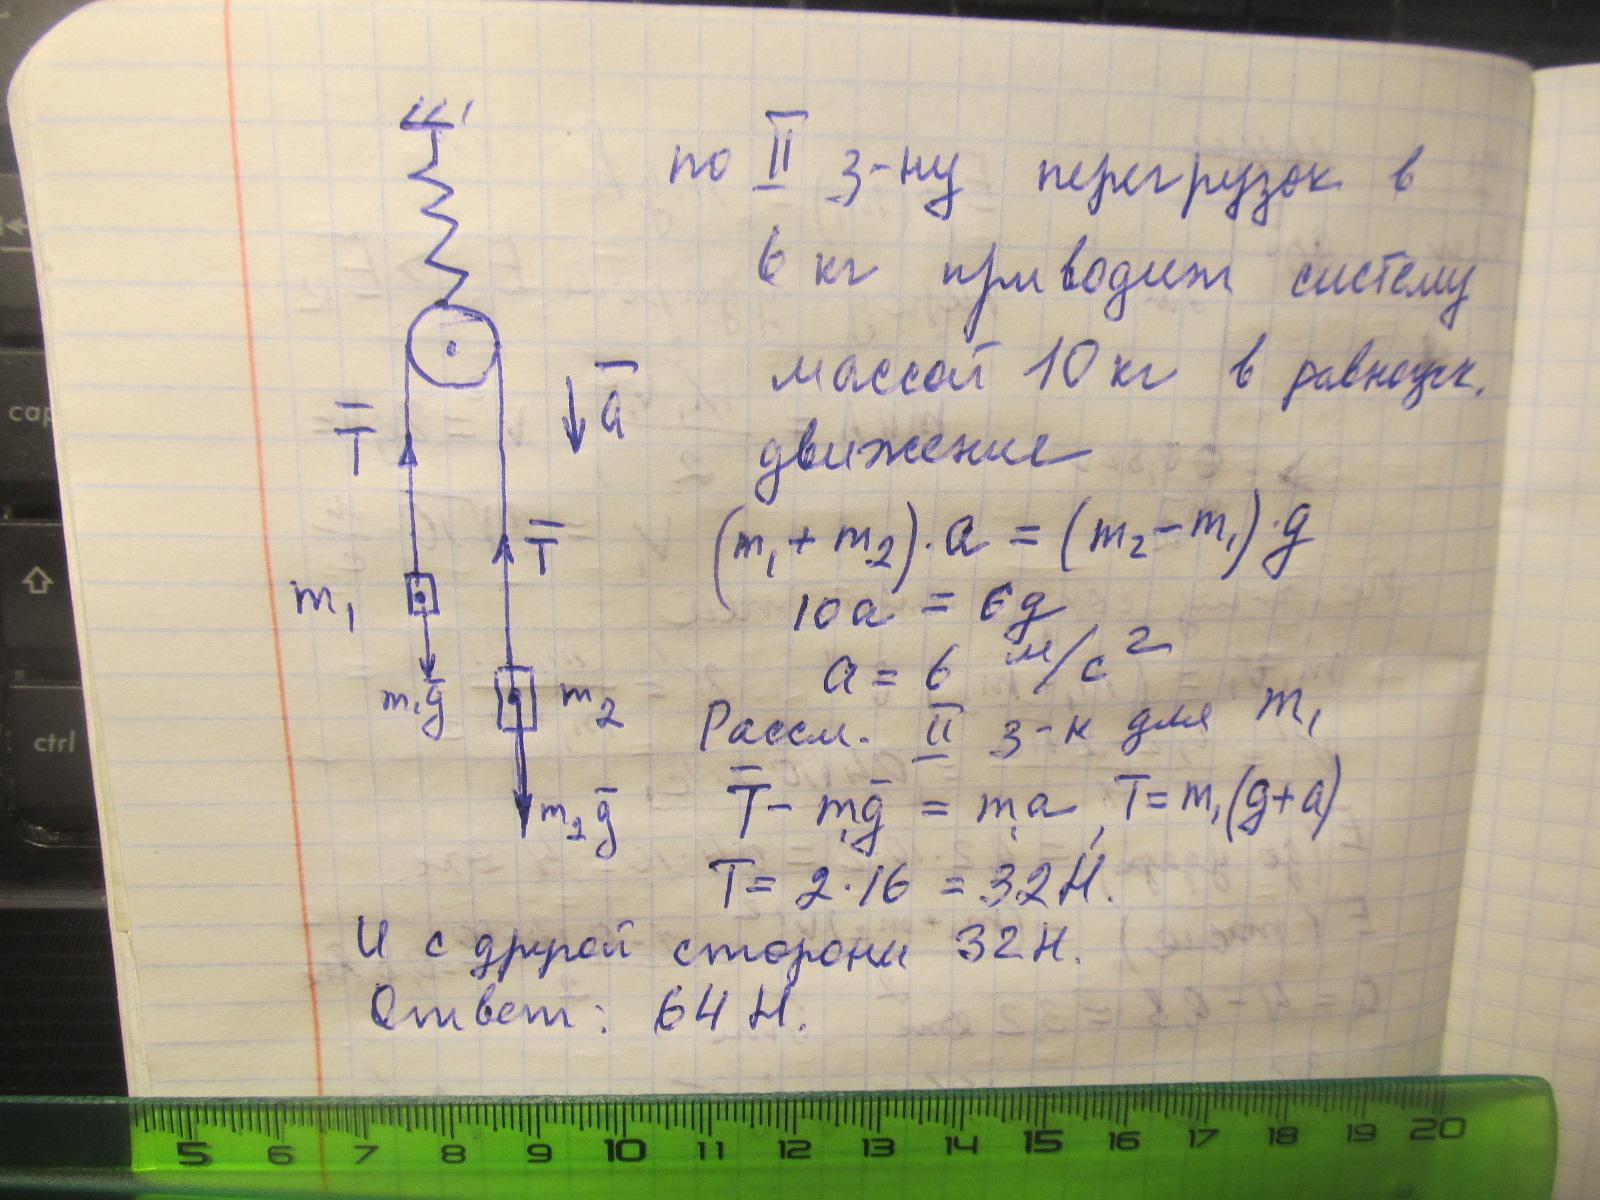 по II з-ну перегрузок в
6 кг приводит систему
массой 10 кг в равноуск.
движение
(m₁ + m₂)·a = (m₂ - m₁)·g
10a = 6g
a = 6 м/с²
Рассм. II з-н для m₁
T̄ - m₁ḡ = m₁a, T = m₁(g+a)
T = 2·16 = 32 Н.
И с другой стороны 32 Н.
Ответ: 64 Н.
T̄
ā
T̄
m₁
m₁ḡ
m₂
m₂ḡ
cap
ctrl
5 6 7 8 9 10 11 12 13 14 15 16 17 18 19 20